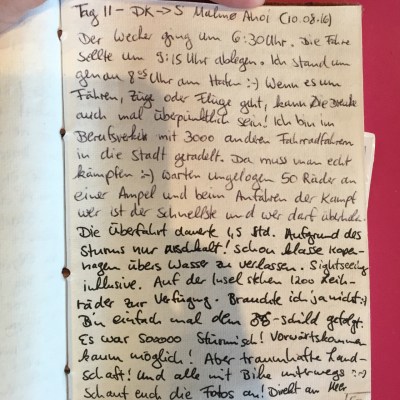 Tag 11 - DK → S Malmö Ahoi (10.08.16)
Der Wecker ging um 6:30Uhr. Die Fähre
sollte um 9:15 Uhr ablegen. Ich stand um
genau 8 Uhr am Hafen :-) Wenn es um
Fähren, Züge oder Flüge geht, kann Die
auch mal überpünktlich sein! Ich bin im
Berufsverkehr mit 3000 anderen Fahrradfahrern
in die Stadt geradelt. Da muss man echt
kämpfen :-) warten ungelogen 50 Räder an
einer Ampel und beim Anfahren der Kampf
wer ist der Schnellste und wer darf überholen.
Die Überfahrt dauerte 1,5 Std. Aufgrund des
Sturms nur arschkalt! Schon klasse Kopen-
hagen übers Wasser zu verlassen. Sightseeing
inklusive. Auf der Insel stehen 1200 Leih-
räder zur Verfügung. Brauchte ich ja nicht :-)
Bin einfach mal dem -schild gefolgt.
Es war sooooo stürmisch! Vorwärtskommen
kaum möglich! Aber traumhafte Land-
schaft! Und alle mit Bike unterwegs :-)
Schaut euch die Fotos an! Direkt am Meer